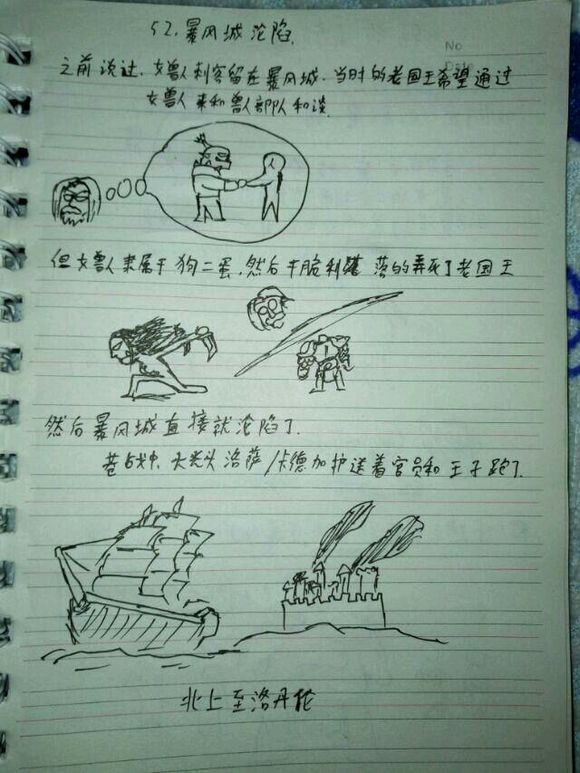 52.暴风城沦陷.
No
Date
之前说过.女兽人刺客留在暴风城.当时的老国王希望通过
女兽人来和兽人部队和谈.
但女兽人隶属于狗二蛋.然后干脆利落的弄死了老国王
然后暴风城直接就沦陷了.
巷战中.大光头洛萨/卡德加护送着官员和王子跑了.
北上至洛丹伦